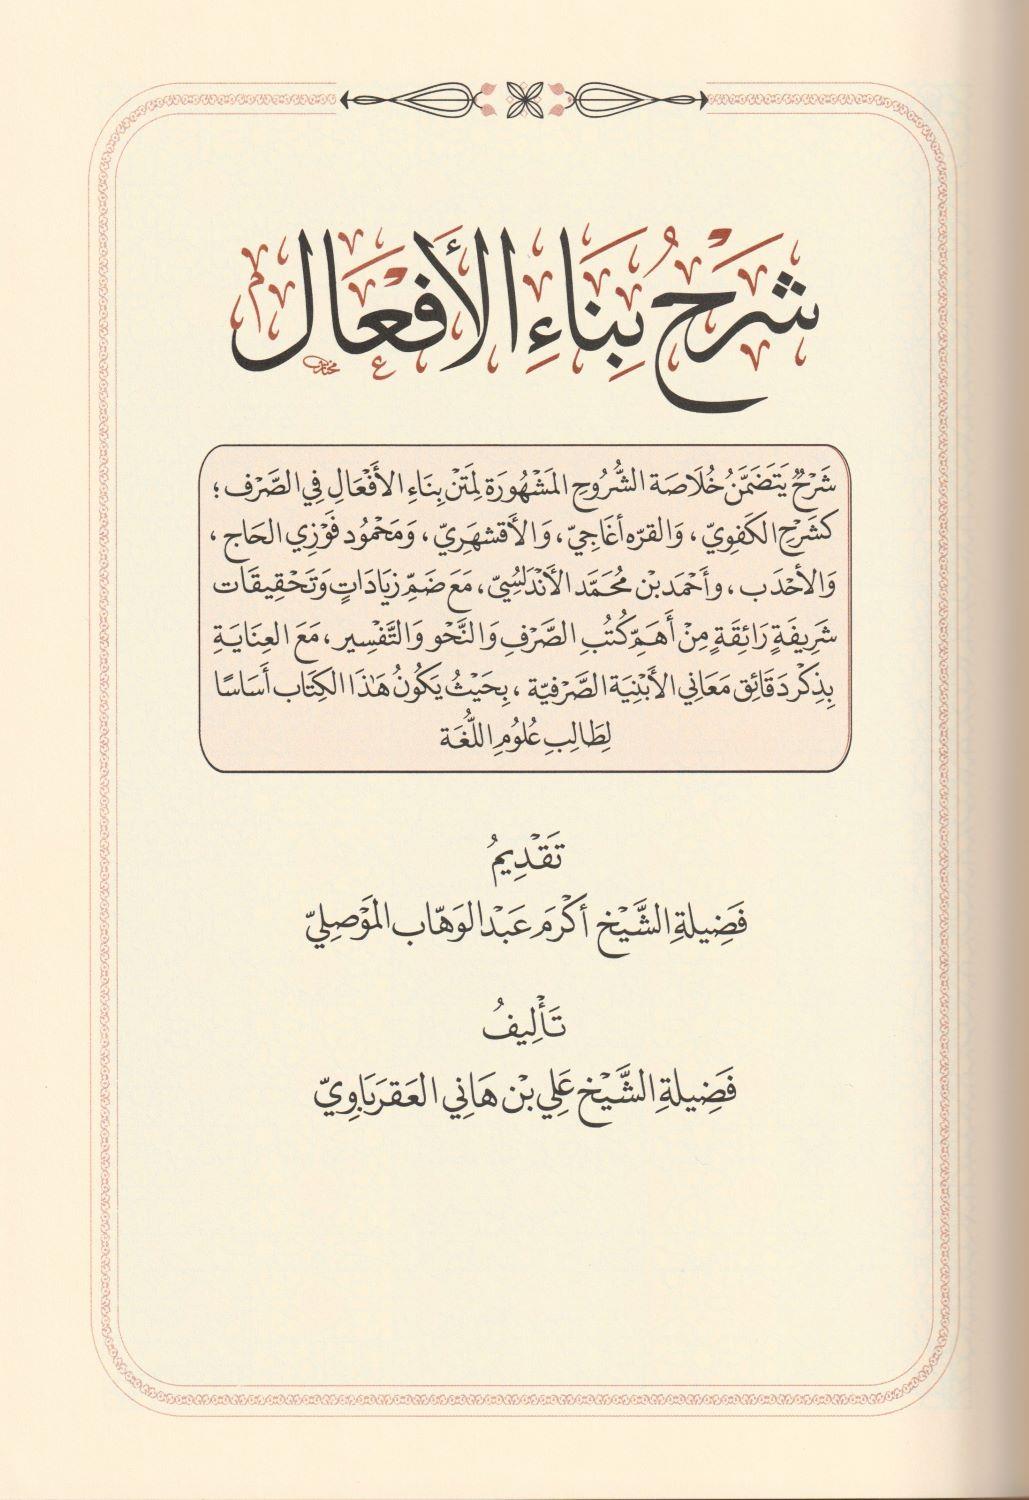 شَرْحُ بِنَاءِ الأَفْعَالِ
شَرْحٌ يَتَضَمَّنُ خُلَاصَة الشُّرُوحِ المَشْهُورَة لِمَتْنِ بِنَاءِ الأَفْعَالِ فِي الصَّرْف ؛
كَشَرْحِ الكَفوِيّ ، وَالقره أغَاجِيّ ، وَالأقشهَرِيّ ، وَمَحْمُود فَوْزِي الحَاج ،
وَالأحْدَب ، وأَحْمَد بْن مُحَمَّد الأَنْدَلُسِيّ ، مَعَ ضَمِّ زِيَادَاتٍ وَتَحْقِيقَات
شَرِيفَةٍ رَائِقَةٍ مِنْ أَهَمِّ كُتُبِ الصَّرْفِ وَالنَّحْوِ وَالتَّفْسِيرِ ، مَعَ العِنَايَةِ
بِذِكْرِ دَقَائِقِ مَعَانِي الأَبْنِيَة الصَّرْفِيّة ، بِحَيْثُ يَكُونُ هَذَا الكِتَاب أَسَاسًا
لِطَالِبِ عُلُومِ اللُّغَة
تَقْدِيمُ
فَضِيلَةِ الشَّيْخ أكْرَم عَبْد الوَهّاب المَوْصِلِيّ
تَأْلِيفُ
فَضِيلَةِ الشَّيْخ عَلِي بْن هَانِي العَقرَبَاوِيّ